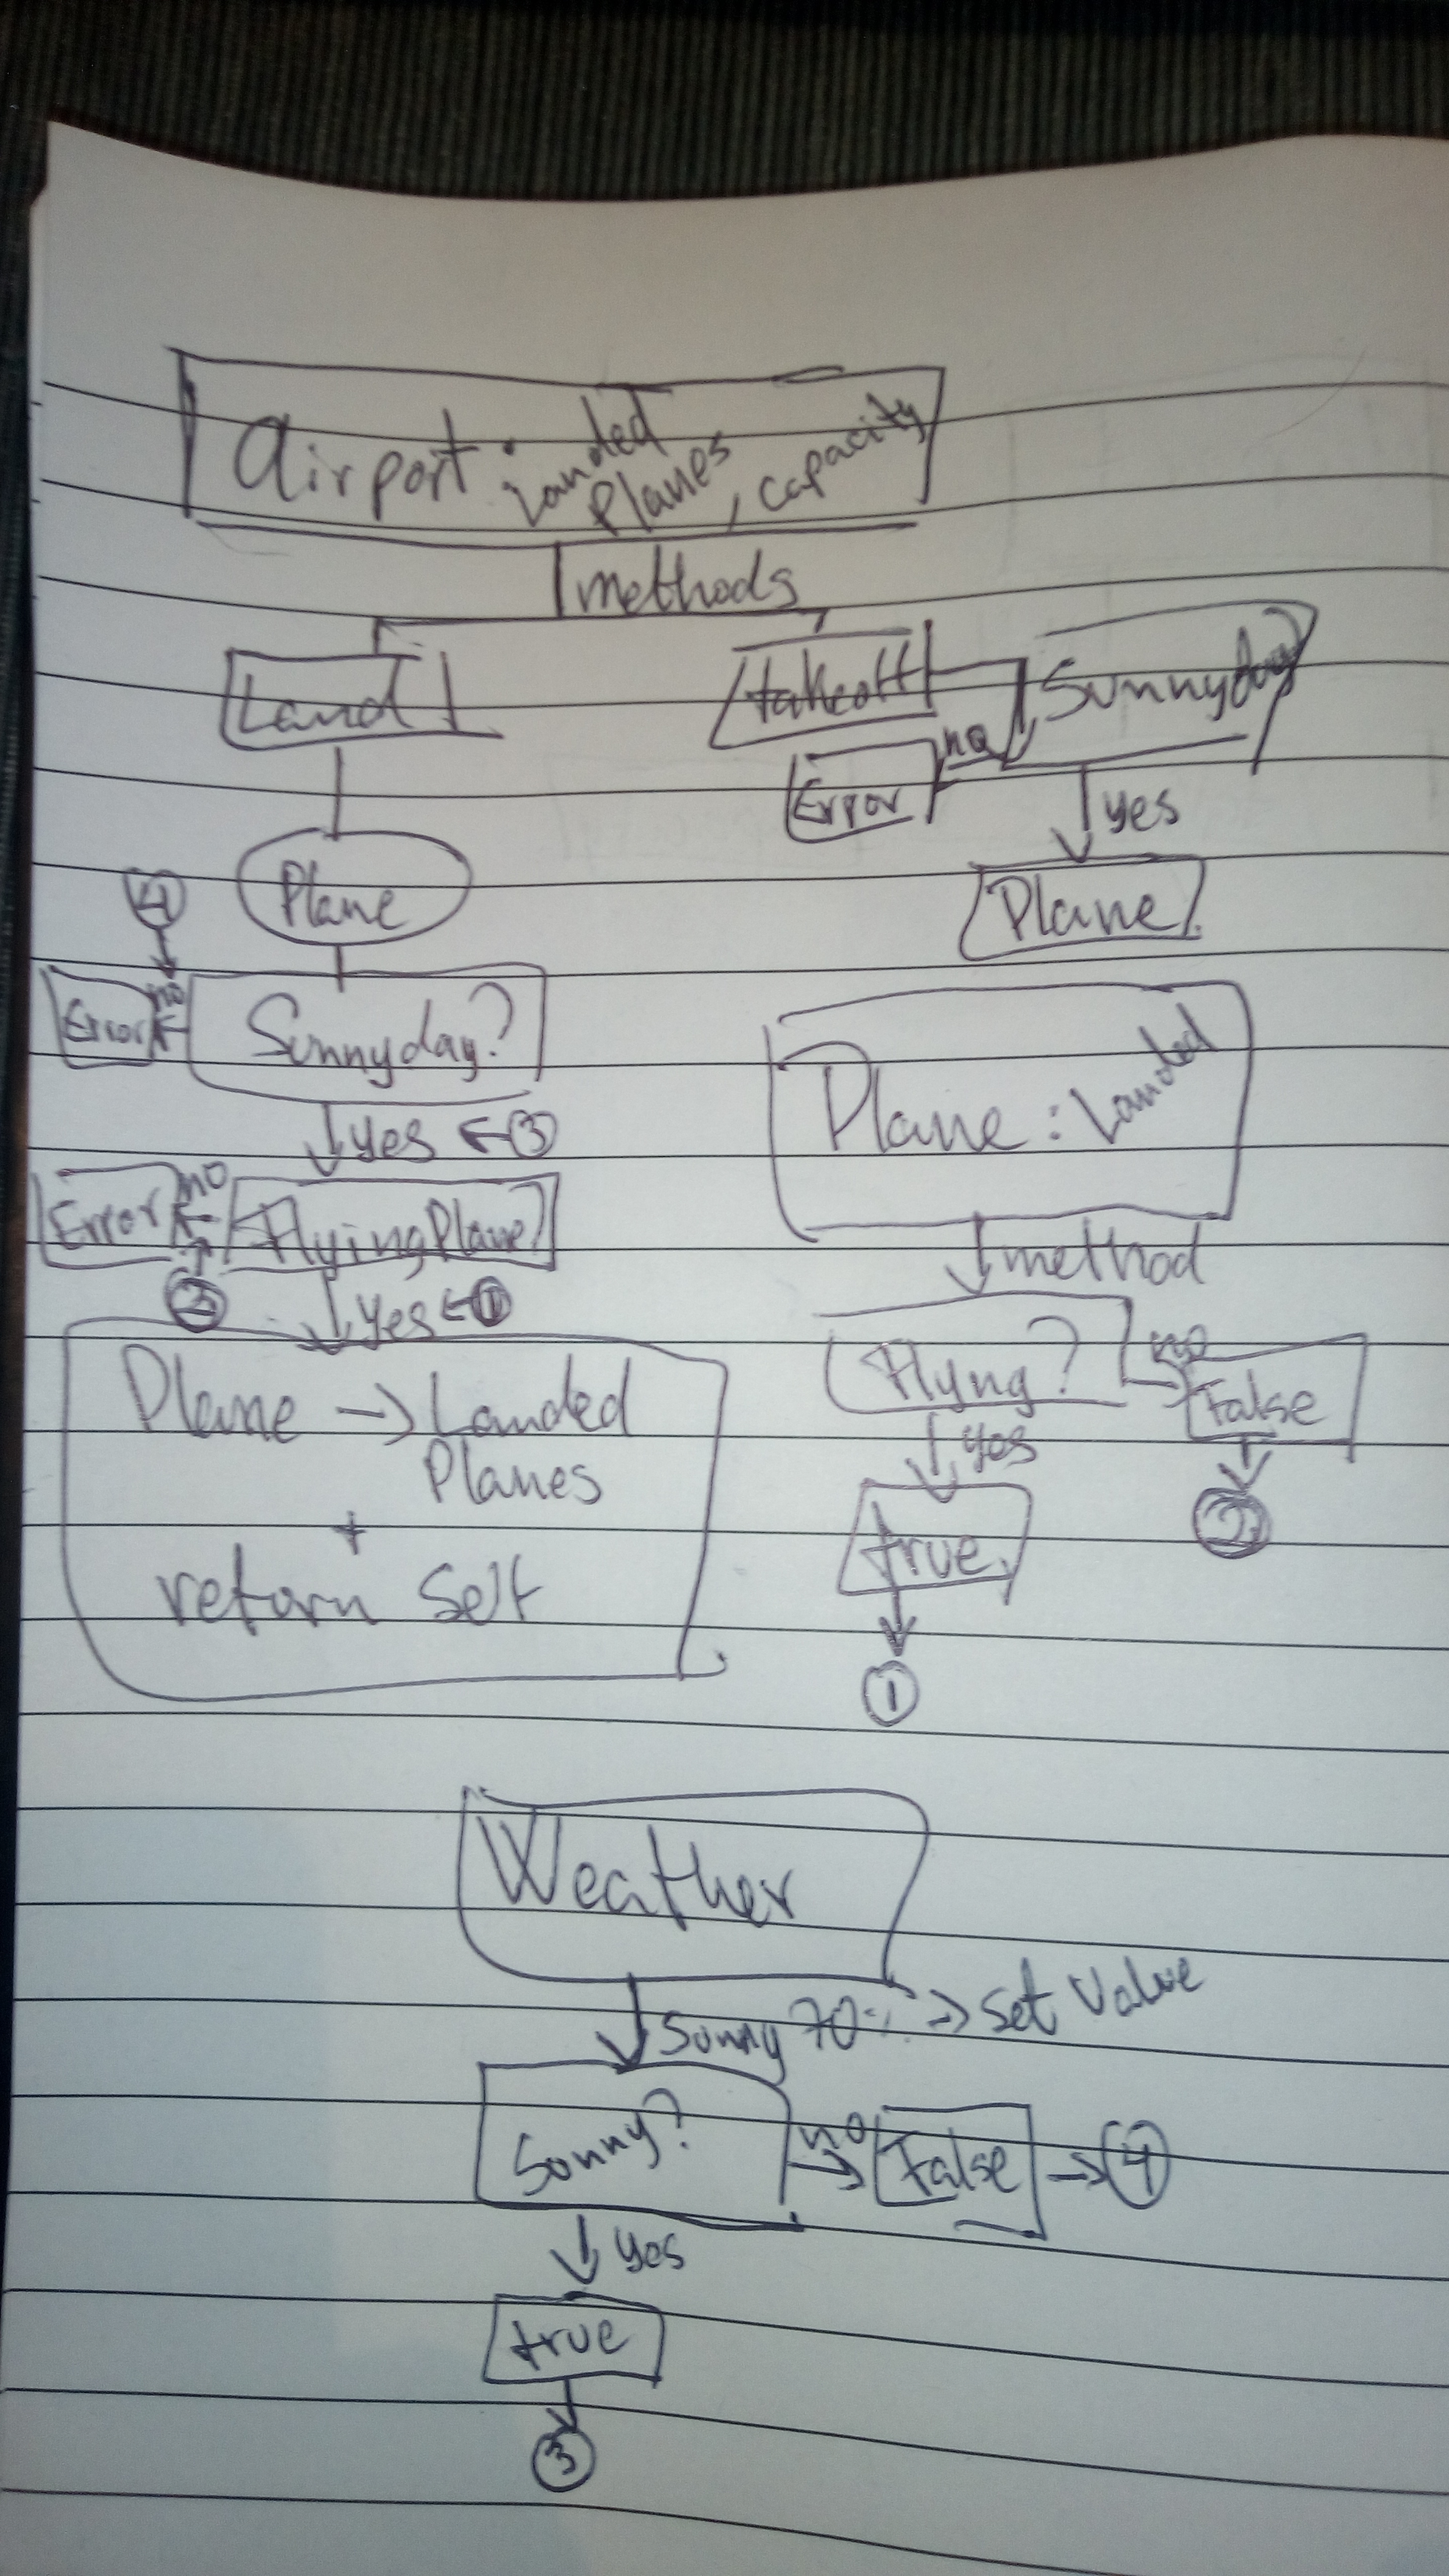 Airport : Landed Planes, capacity
methods
Land
takeoff
Sunnyday
no
Error
yes
Plane
Plane
4
Error
no
Sunnyday?
yes ← 3
Error
no
FlyingPlane?
2
yes ← 1
Plane → Landed
Planes
+
return Self
Plane : Landed
method
Flyng?
no
False
2
yes
true
1
Weather
Sunny 70% → set Value
Sunny?
no
False → 4
yes
true
3